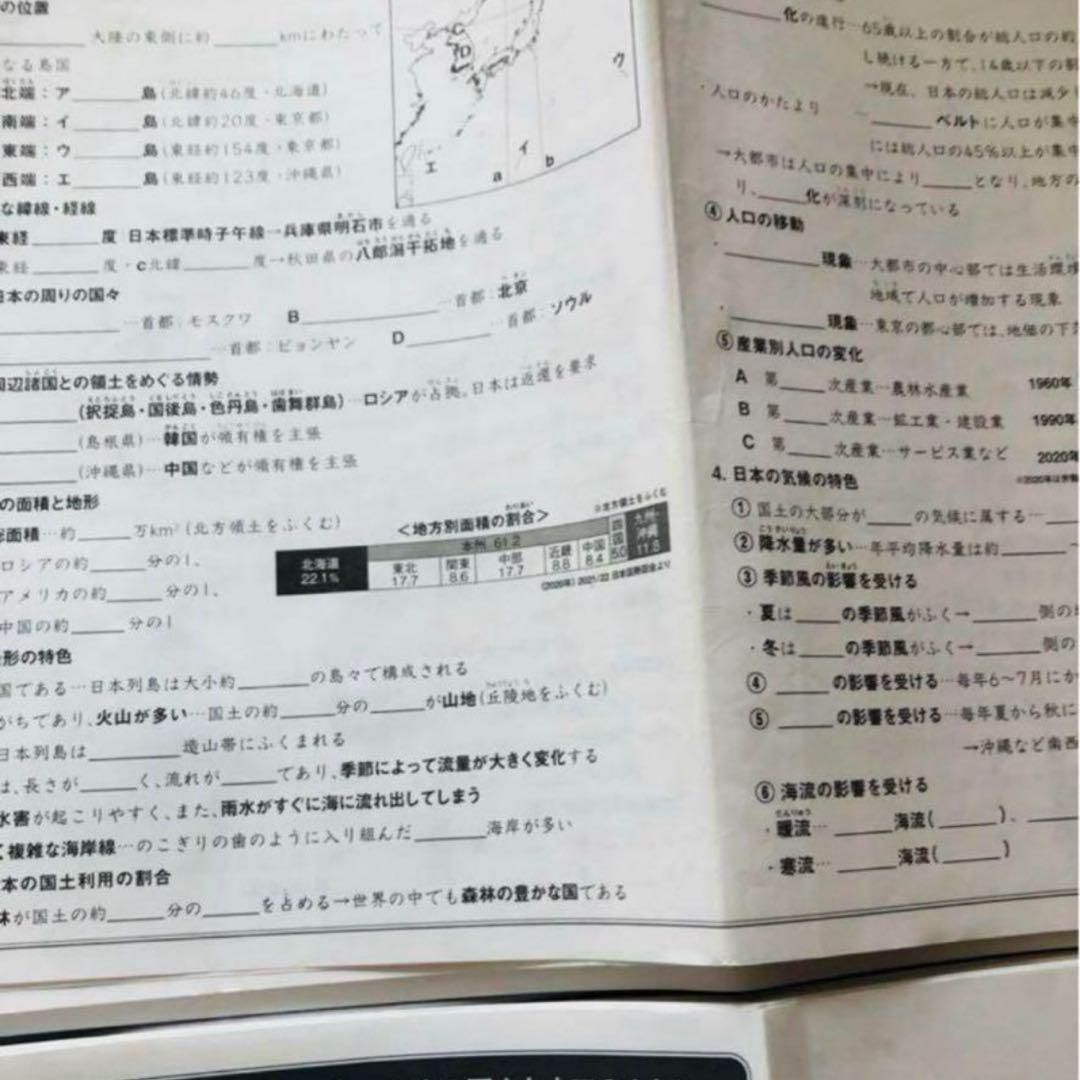 の位置
＿＿＿大陸の東側に約＿＿＿kmにわたって
なる島国
北端：ア＿＿＿島(北緯約46度・北海道)
南端：イ＿＿＿島(北緯約20度・東京都)
東端：ウ＿＿＿島(東経約154度・東京都)
西端：エ＿＿＿島(東経約123度・沖縄県)
な緯線・経線
東経＿＿＿度 日本標準時子午線→兵庫県明石市を通る
東経＿＿＿度・c北緯＿＿＿度→秋田県の八郎潟干拓地を通る
日本の周りの国々
＿＿＿…首都：モスクワ B＿＿＿…首都：北京
＿＿＿…首都：ピョンヤン D＿＿＿…首都：ソウル
周辺諸国との領土をめぐる情勢
＿＿＿(択捉島・国後島・色丹島・歯舞群島)…ロシアが占拠。日本は返還を要求
＿＿＿(島根県)…韓国が領有権を主張
＿＿＿(沖縄県)…中国などが領有権を主張
の面積と地形
総面積…約＿＿＿万km²(北方領土をふくむ)
ロシアの約＿＿＿分の1、
アメリカの約＿＿＿分の1、
中国の約＿＿＿分の1
C
D
ウ
エ
イ
a
b
<地方別面積の割合>
※北方領土をふくむ
本州 61.2
北海道 22.1%
東北 17.7
関東 8.6
中部 17.7
近畿 8.8
中国 8.4
四国 5.0
九州・沖縄 11.8
(2020年) 2021/22 日本国勢図会より
地形の特色
国である…日本列島は大小約＿＿＿の島々で構成される
がちであり、火山が多い…国土の約＿＿＿分の＿＿＿が山地(丘陵地をふくむ)
日本列島は＿＿＿造山帯にふくまれる
は、長さが＿＿＿く、流れが＿＿＿であり、季節によって流量が大きく変化する
水害が起こりやすく、また、雨水がすぐに海に流れ出してしまう
く複雑な海岸線…のこぎりの歯のように入り組んだ＿＿＿海岸が多い
本の国土利用の割合
林が国土の約＿＿＿分の＿＿＿を占める→世界の中でも森林の豊かな国である
＿＿＿化の進行…65歳以上の割合が総人口の約
し続ける一方で、14歳以下の割
→現在、日本の総人口は減少し
・人口のかたより
＿＿＿ベルトに人口が集中
には総人口の45%以上が集中
→大都市は人口の集中により＿＿＿となり、地方の
り、＿＿＿化が深刻になっている
④人口の移動
・＿＿＿現象…大都市の中心部では生活環境
地域で人口が増加する現象
・＿＿＿現象…東京の都心部では、地価の下落
⑤産業別人口の変化
A 第＿＿＿次産業…農林水産業 1960年
B 第＿＿＿次産業…鉱工業・建設業 1990年
C 第＿＿＿次産業…サービス業など 2020年
4. 日本の気候の特色
①国土の大部分が＿＿＿の気候に属する…＿＿＿
②降水量が多い…年平均降水量は約＿＿＿
③季節風の影響を受ける
・夏は＿＿＿の季節風がふく→＿＿＿側の
・冬は＿＿＿の季節風がふく→＿＿＿側の
④＿＿＿の影響を受ける…毎年6〜7月にか
⑤＿＿＿の影響を受ける…毎年夏から秋に
→沖縄など南西
⑥海流の影響を受ける
・暖流…＿＿＿海流(＿＿＿)、＿＿＿
・寒流…＿＿＿海流(＿＿＿)